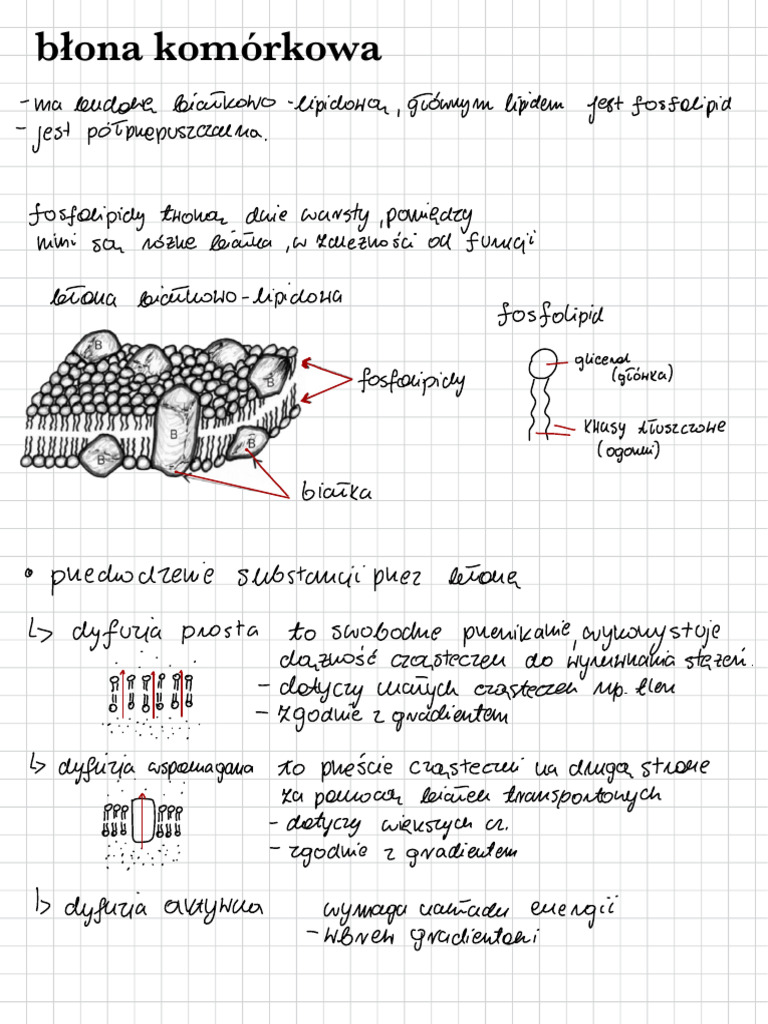 błona komórkowa
- ma budowę białkowo-lipidową, głównym lipidem jest fosfolipid
- jest półprzepuszczalna.
fosfolipidy tworzą dwie warsty, pomiędzy
nimi są różne białka, w zależności od funkcji
błona białkowo-lipidowa
fosfolipid
B
B
B
B
B
fosfolipidy
białka
glicerol
(główka)
kwasy tłuszczowe
(ogonki)
• przechodzenie substancji przez błonę
↳ dyfuzja prosta to swobodne przenikanie, wykorzystuje
dążność cząsteczek do wyrównania stężeń.
- dotyczy małych cząsteczek np. tlen
- zgodnie z gradientem
↳ dyfuzja wspomagana to przeście cząsteczki na drugą stronę
za pomocą białek transportowych
- dotyczy większych cz.
- zgodnie z gradientem
↳ dyfuzja aktywna wymaga nakładu energii
- wbrew gradientowi